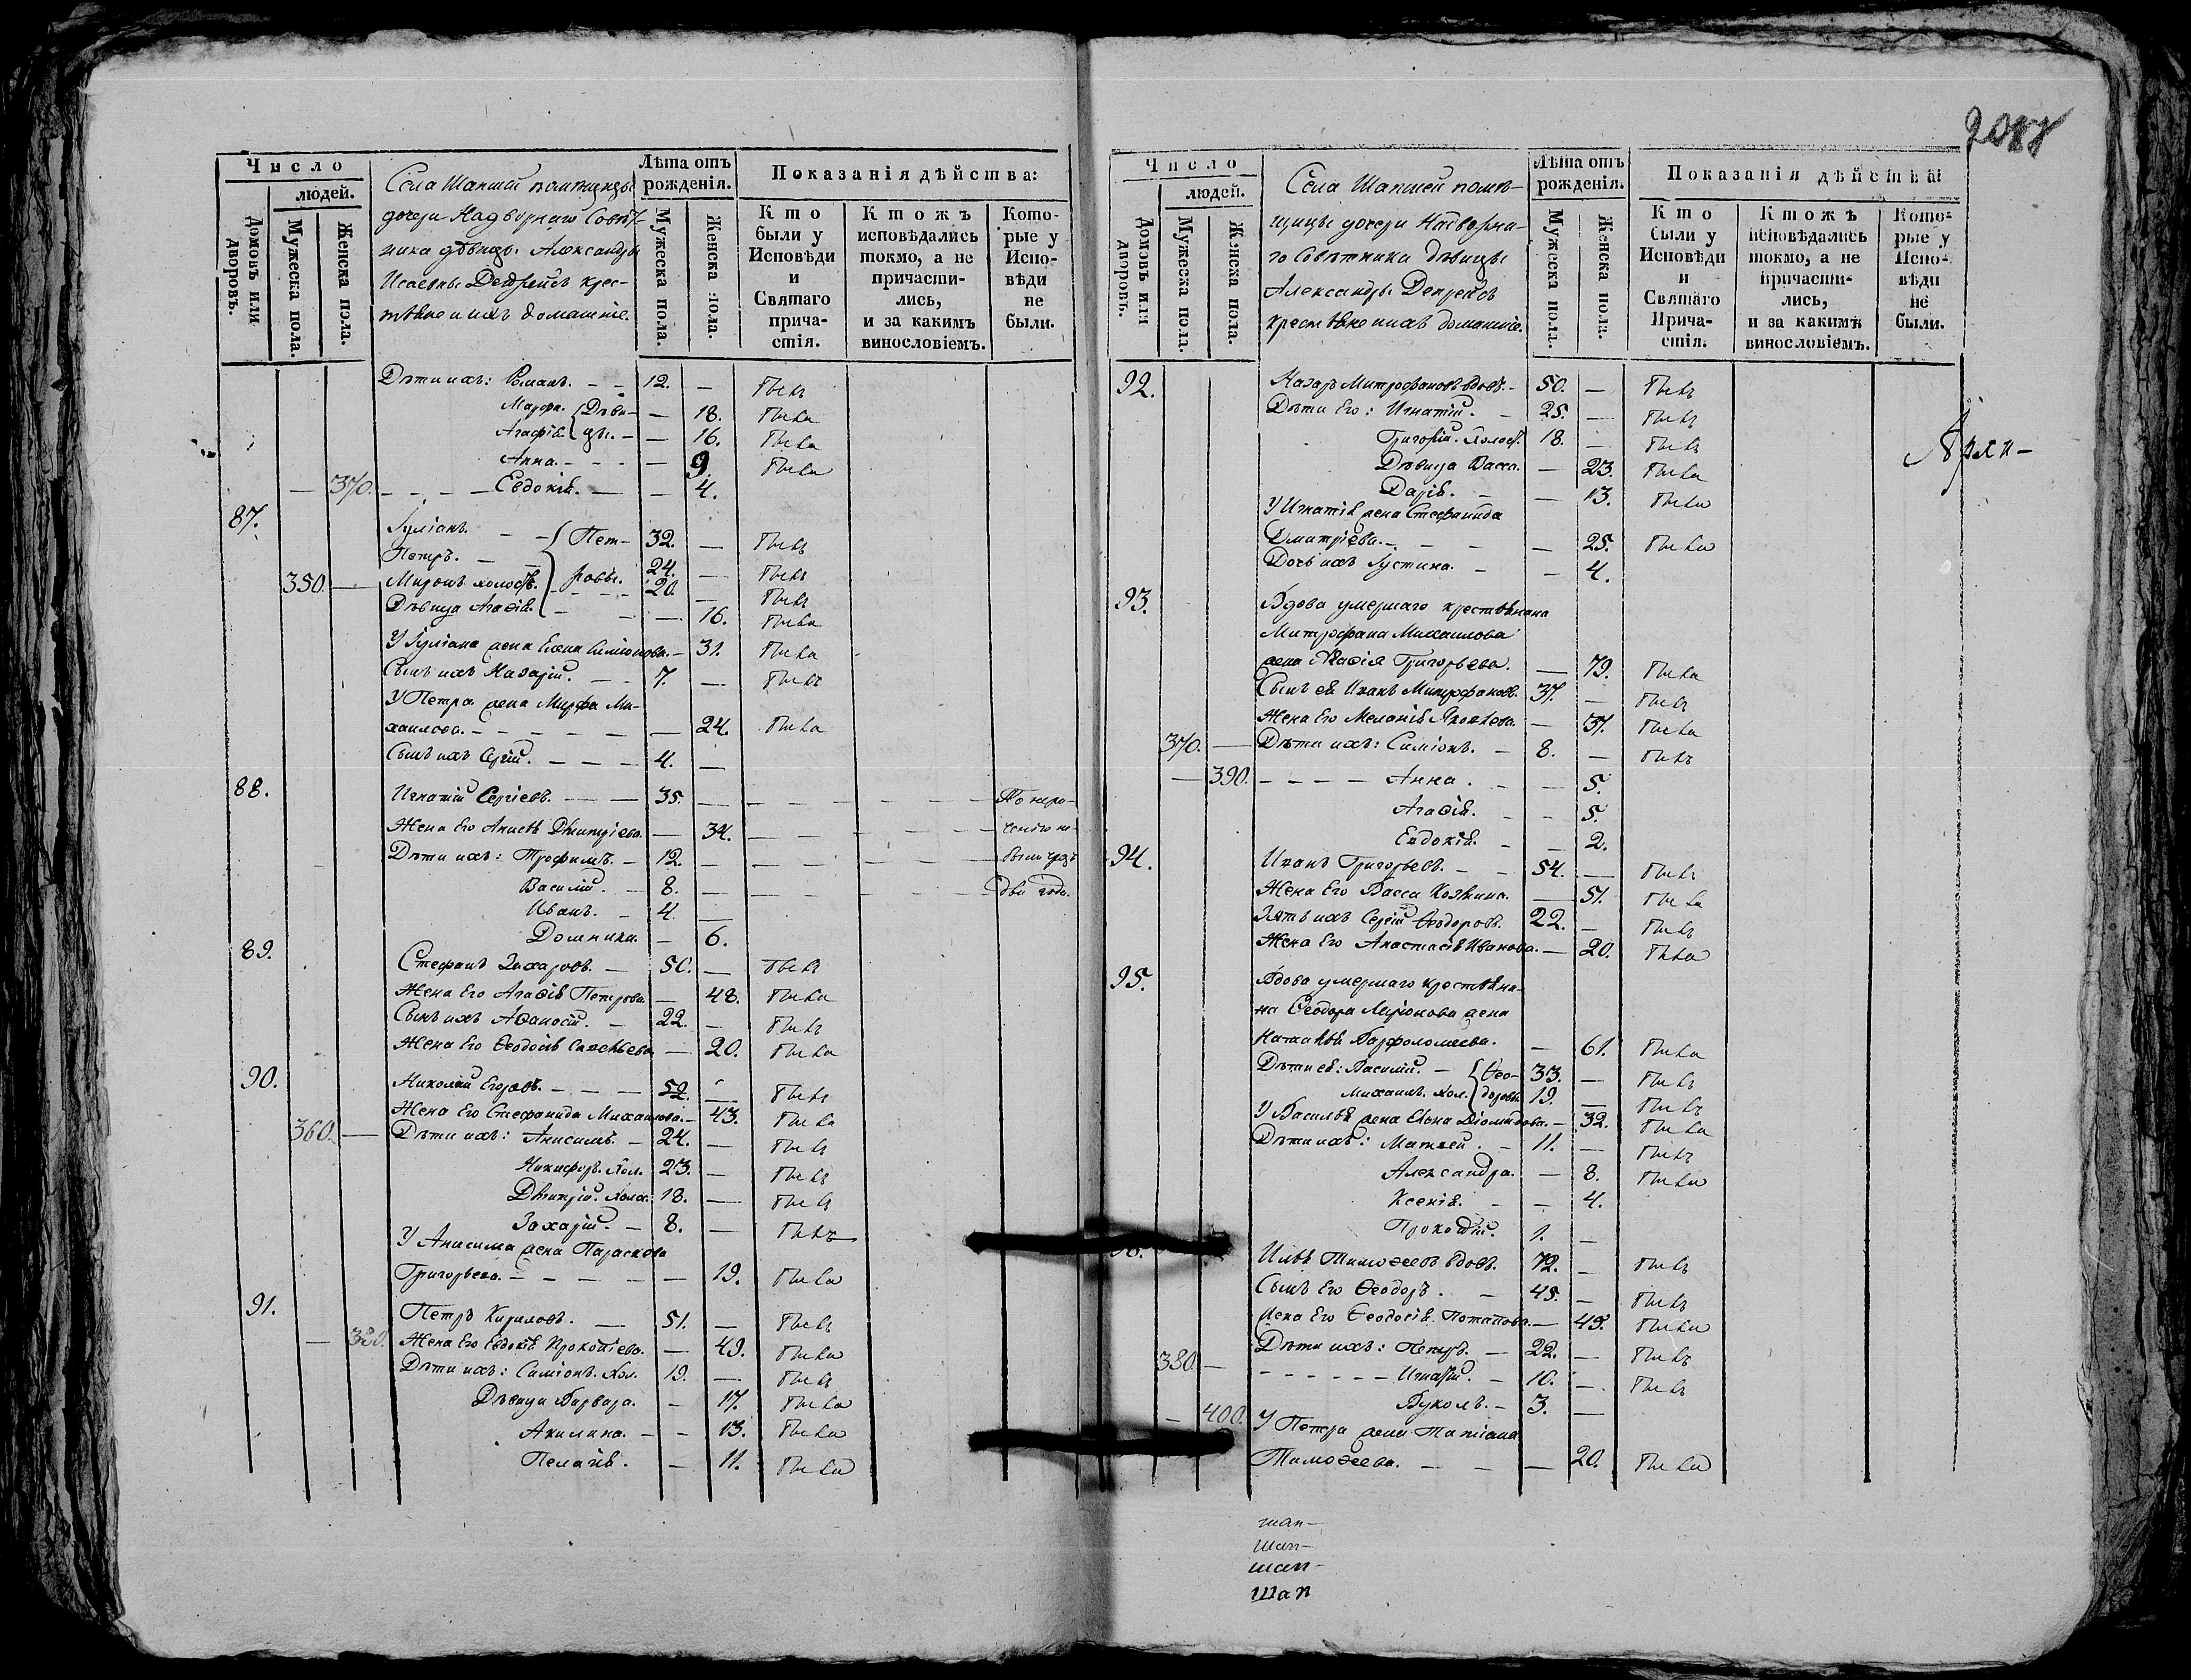 Число
людей.
Домовъ или дворовъ.
Мужеска пола.
Женска пола.
Села Шапшей помѣщицы
дочери Надворнаго Совѣт-
ника дѣвицы Александры
крес-
тьяне и ихъ домашніе.
Лѣта отъ рожденія.
Мужеска пола.
Женска пола.
Показанія дѣйства:
Кто были у Исповѣди и Святаго причастія.
Ктожъ исповѣдались токмо, а не причастились, и за какимъ винословіемъ.
Которые у Исповѣди не были.
Дѣти ихъ: Романъ. 12. — былъ
Марѳа. Дѣви- — 18. была
Агафія. цы. — 16. была
Анна. — 9. была
— 370. Евдокія. — 4.
87.
Іуліанъ. Пет- 32. — былъ
Петръ. 24. — былъ
350. Миронъ холостъ. ровы. 20. — былъ
Дѣвица Агафія. — 16. была
У Іуліана жена Елена Симіонова. — 31. была
Сынъ ихъ Назарій. 7. — былъ
У Петра жена Марѳа Ми-
хаилова. — 24. была
Сынъ ихъ Сергій. 4. —
88. Игнатій Сергіевъ. 35. — По нера-
Жена Его Анисія Дмитріева. — 34. — ченію не
Дѣти ихъ: Трофимъ. 12. — были чрезъ
Василій. 8. — два года.
Иванъ. 4. —
Домника. — 6.
89. Стефанъ Захаровъ. 50. — былъ
Жена Его Агафія Петрова — 48. была
Сынъ ихъ Аѳанасій. 22. — былъ
Жена Его Ѳеодосія Савельева — 20. была
90. Николай Егоровъ. 52. — былъ
Жена Его Стефанида Михаилова. — 43. была
360. Дѣти ихъ: Анисимъ. 24. — былъ
Никифоръ. Хол. 23. — былъ
Дмитрій. Холос. 18. — былъ
Захарій. 8. — былъ
У Анисима жена Параскева
Григорьева. — 19. была
91. Петръ Кириловъ. 51. — былъ
— 380. Жена Его Евдокія Прокопіева. — 49. была
Дѣти ихъ: Симіонъ. Хол. 19. — былъ
Дѣвица Варвара. — 17. была
Акилина. — 13. была
Пелагія. — 11. была
Число
людей.
Домовъ или дворовъ.
Мужеска пола.
Женска пола.
Села Шапшей помѣ-
щицы дочери Надворна-
го Совѣтника дѣвицы
Александры
крестьяне и ихъ домашніе.
Лѣта отъ рожденія.
Мужеска пола.
Женска пола.
Показанія дѣйства
Кто были у Исповѣди и Святаго Причастія.
Ктожъ исповѣдались токмо, а не причастились, и за какимъ винословіемъ.
Которые у Исповѣди не были.
92. Назаръ Митрофановъ вдовъ. 50. — былъ
Дѣти Его: Игнатій. 25. — былъ
Григорій. Холост. 18. — былъ
Дѣвица Васса. — 23. была
Дарія. — 13. была
У Игнатія жена Стефанида
Дмитріева. — 25. была
Дочь ихъ Іустина. — 4.
93. Вдова умершаго крестьянина
Митрофана Михаилова
жена Агафія Григорьева. — 79. была
Сынъ ея Иванъ Митрофановъ. 37. — былъ
Жена Его Меланія Яковлева. — 37. была
370. — Дѣти ихъ: Симіонъ. 8. — былъ
— 390. Анна. — 5.
Агафія. — 5.
Евдокія. — 2.
94. Иванъ Григорьевъ. 54. — былъ
Жена Его Васса Козмина. — 51. была
Зять ихъ Сергій Ѳеодоровъ. 22. — былъ
Жена Его Анастасія Иванова. — 20. была
95. Вдова умершаго крестьяни-
на Ѳеодора жена
Наталія Варфоломеева. — 61. была
Дѣти ея: Василій. Ѳео- 33. — былъ
Михаилъ. Хол. доровы. 19. — былъ
У Василья жена Елена Діомидова. — 32. была
Дѣти ихъ: Матвей. 11. — былъ
Александра. — 8. была
Ксенія. — 4.
Прокофій. 1. —
Илья Тимоѳеевъ вдовъ. 72. — былъ
Сынъ Его Ѳеодоръ. 45. — былъ
Жена Его Ѳеодосія Потапова. — 45. была
380. — Дѣти ихъ: Петръ. 22. — былъ
Игнатій. 10. — былъ
Вуколъ. 3. —
— 400. У Петра жена Татіана
Тимоѳеева. — 20. была
шап-
шап-
шап-
шап